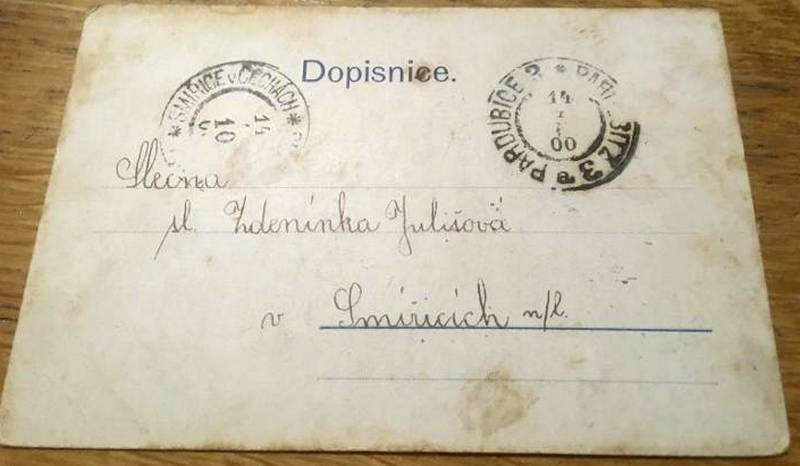 Dopisnice.
* SMIŘICE v ČECHÁCH *
14
10
PARDUBICE 3 * PARDUBITZ 3 * a
14
00
Slečna
sl. Zdeninka Julišová
v Smiřicích n/l.